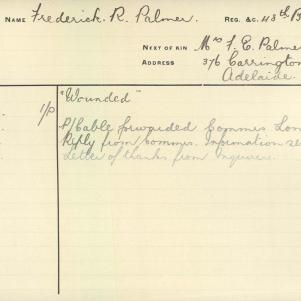 NAME Frederick. R. Palmer. REG. &C. 48th B
NEXT OF KIN Mrs F. E. Palme
ADDRESS 376 Carrington
Adelaide.
"Wounded"
1/P P/Cable forwarded Commes. Lon
Reply from Commes. Information re
Letter of thanks from Inquirer.